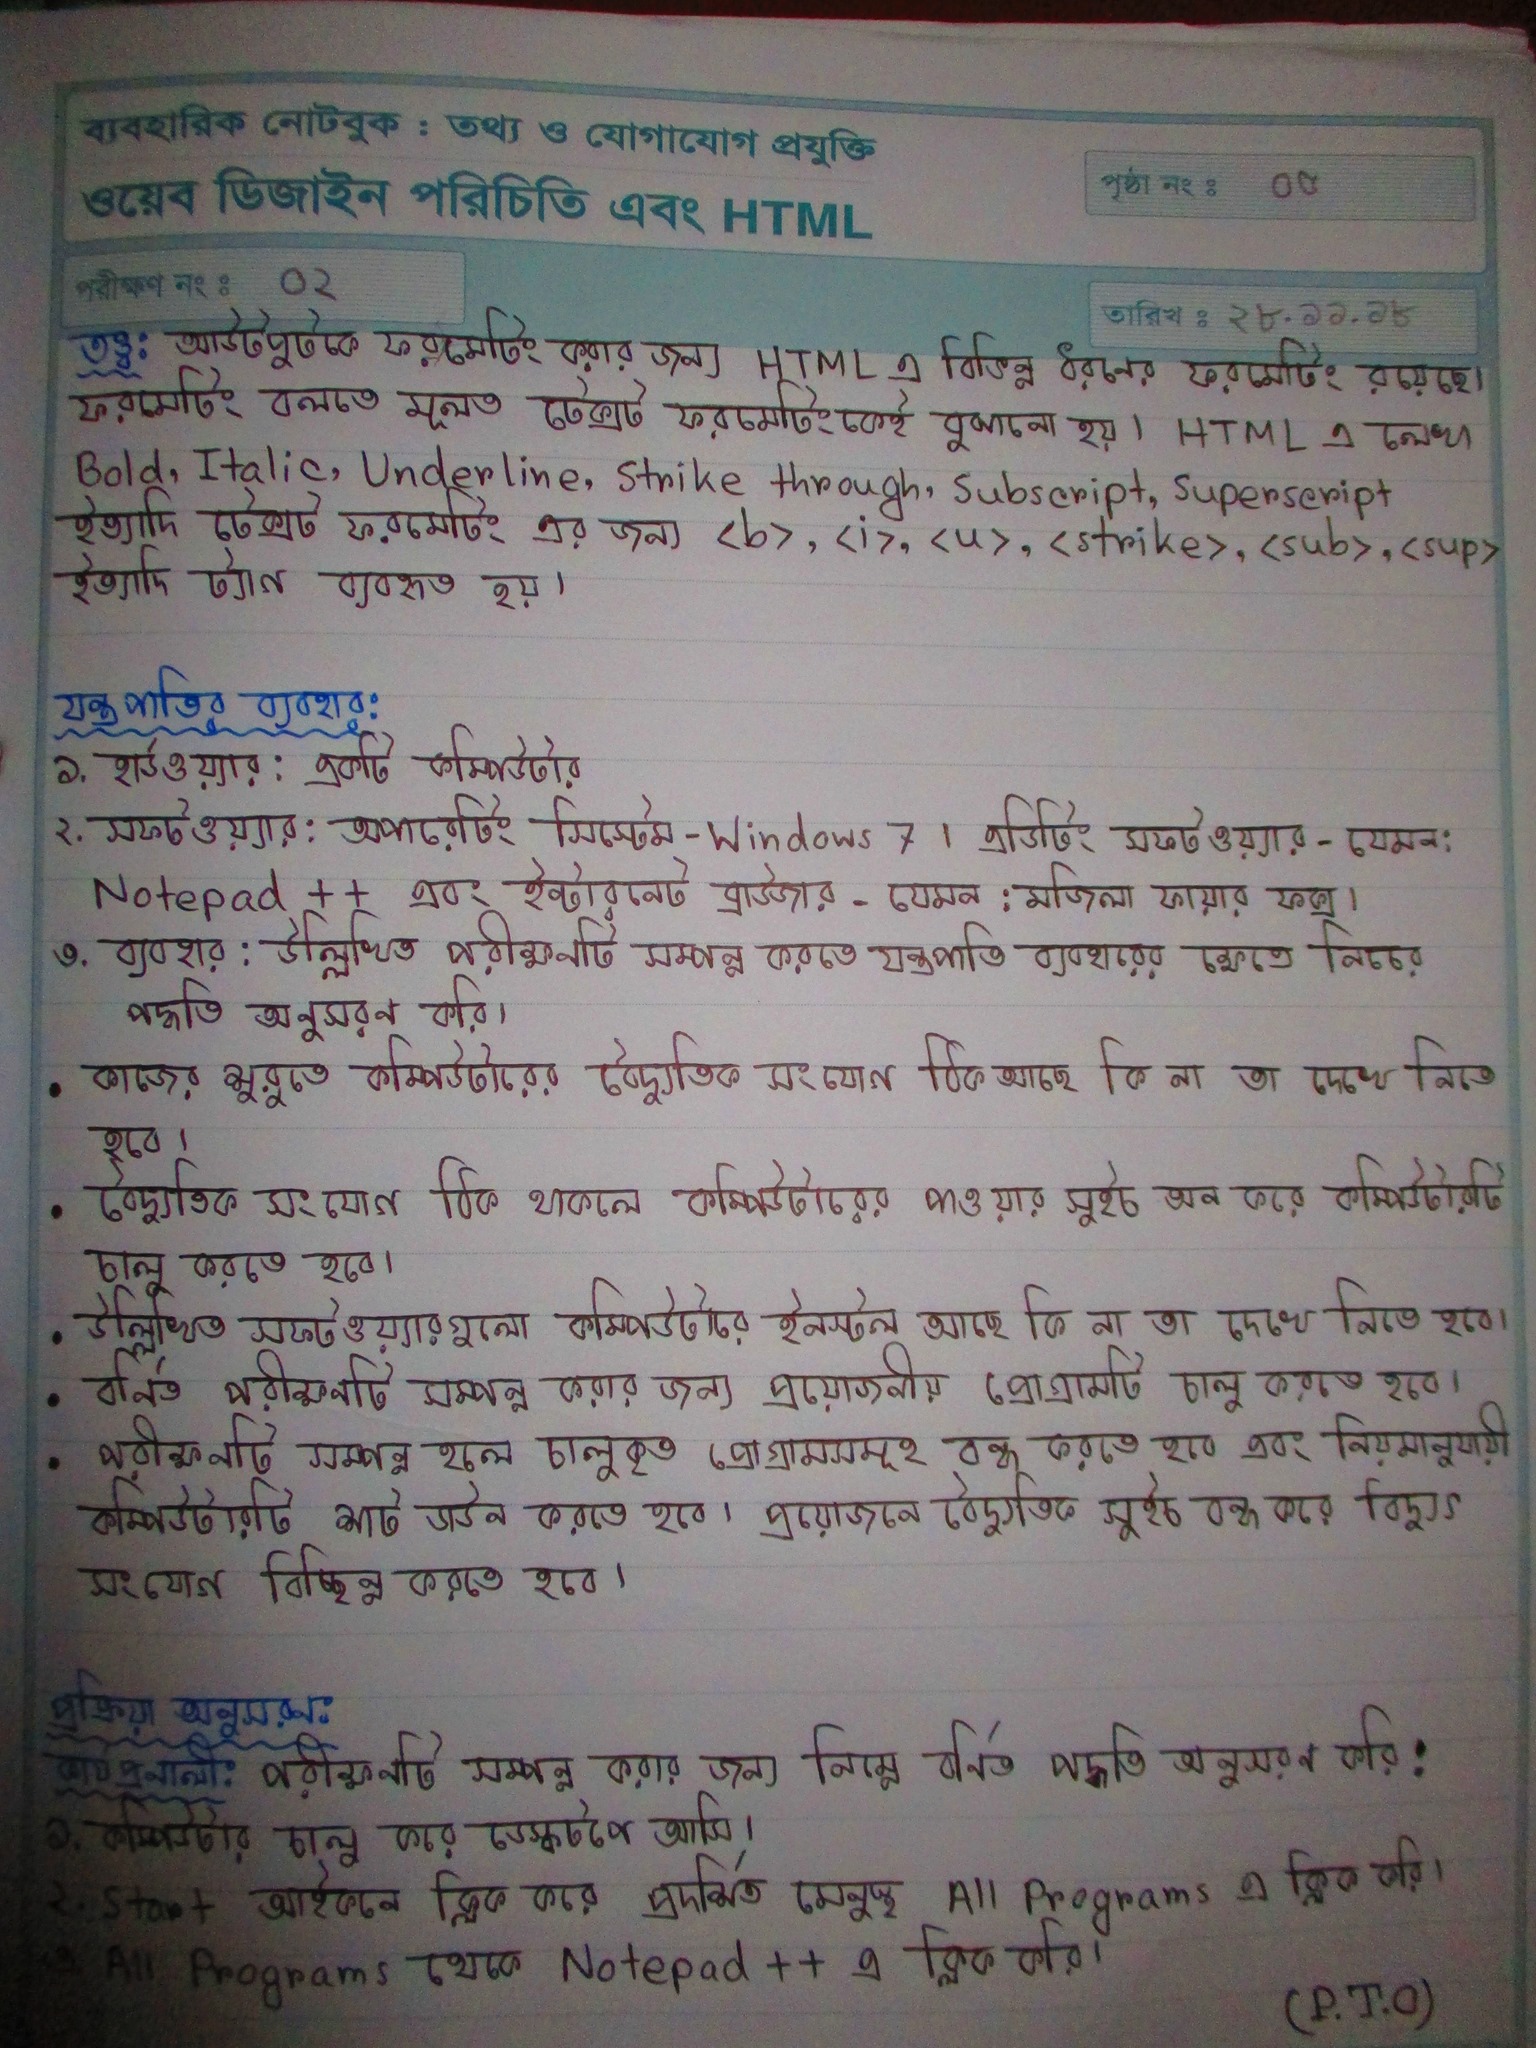 ব্যবহারিক নোটবুক : তথ্য ও যোগাযোগ প্রযুক্তি
ওয়েব ডিজাইন পরিচিতি এবং HTML
পৃষ্ঠা নং : ০৫
পরীক্ষণ নং : ০২
তারিখ : ২৮.১১.১৮
তত্ত্ব: আউটপুটকে ফরমেটিং করার জন্য HTML এ বিভিন্ন ধরনের ফরমেটিং রয়েছে।
ফরমেটিং বলতে মূলত টেক্সট ফরমেটিংকেই বুঝানো হয়। HTML এ লেখা
Bold, Italic, Underline, Strike through, Subscript, Superscript
ইত্যাদি টেক্সট ফরমেটিং এর জন্য <b>, <i>, <u>, <strike>, <sub>, <sup>
ইত্যাদি ট্যাগ ব্যবহৃত হয়।
যন্ত্রপাতির ব্যবহার:
১. হার্ডওয়্যার: একটি কম্পিউটার
২. সফটওয়্যার: অপারেটিং সিস্টেম - Windows 7 । এডিটিং সফটওয়্যার - যেমন:
Notepad ++ এবং ইন্টারনেট ব্রাউজার - যেমন : মজিলা ফায়ার ফক্স।
৩. ব্যবহার: উল্লিখিত পরীক্ষনটি সম্পন্ন করতে যন্ত্রপাতি ব্যবহারের ক্ষেত্রে নিচের
পদ্ধতি অনুসরণ করি।
• কাজের শুরুতে কম্পিউটারের বৈদ্যুতিক সংযোগ ঠিকআছে কি না তা দেখে নিতে
হবে।
• বৈদ্যুতিক সংযোগ ঠিক থাকলে কম্পিউটারের পাওয়ার সুইচ অন করে কম্পিউটারটি
চালু করতে হবে।
• উল্লিখিত সফটওয়্যারগুলো কম্পিউটারে ইনস্টল আছে কি না তা দেখে নিতে হবে।
• বর্নিত পরীক্ষনটি সম্পন্ন করার জন্য প্রয়োজনীয় প্রোগ্রামটি চালু করতে হবে।
• পরীক্ষনটি সম্পন্ন হলে চালুকৃত প্রোগ্রামসমূহ বন্ধ করতে হবে এবং নিয়মানুযায়ী
কম্পিউটারটি শাট ডাউন করতে হবে। প্রয়োজনে বৈদ্যুতিক সুইচ বন্ধ করে বিদ্যুৎ
সংযোগ বিচ্ছিন্ন করতে হবে।
প্রক্রিয়া অনুসরণ:
কার্যপ্রনালী: পরীক্ষনটি সম্পন্ন করার জন্য নিম্নে বর্নিত পদ্ধতি অনুসরণ করি:
১. কম্পিউটার চালু করে ডেস্কটপে আসি।
২. Start আইকনে ক্লিক করে প্রদর্শিত মেনুস্থ All Programs এ ক্লিক করি।
৩ All Programs থেকে Notepad ++ এ ক্লিক করি।
(P.T.O)